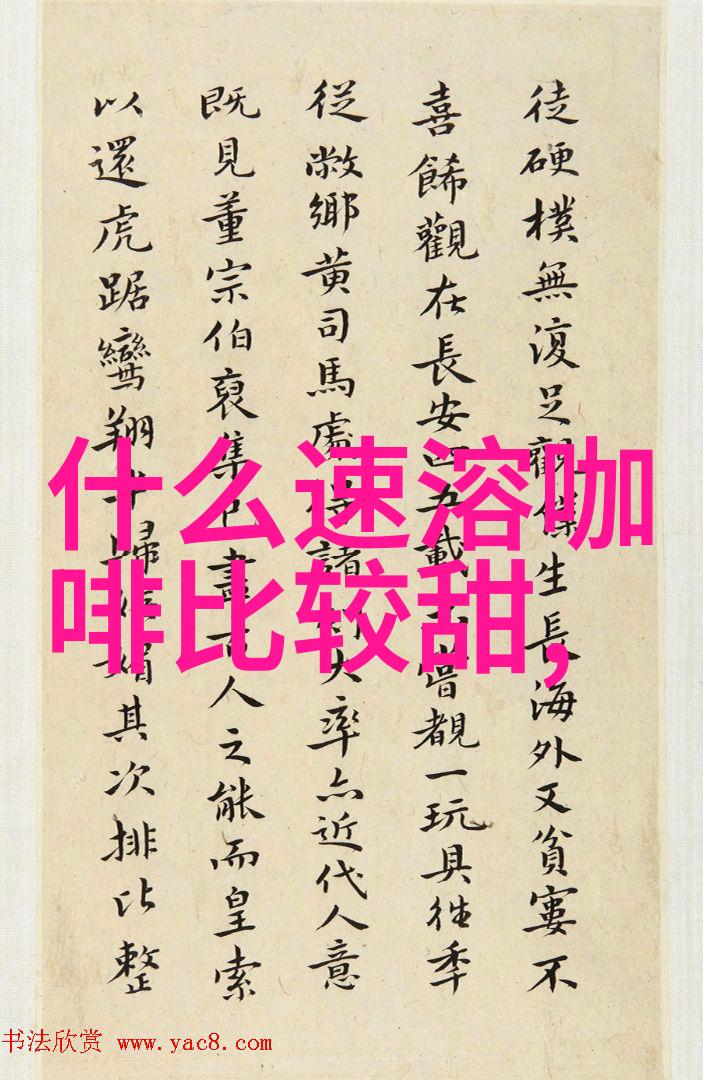 徒硬樸無復足觀僕生長海外又貧窶不
喜餙觀在長安四五載 嘗覩一玩具往季
從敝鄉黄司馬處 諸 大率亦近代人意
既見董宗伯裒集 盡 人之能而皇索
以還虎踞鸞翔 歸 其次排比整
什么速溶咖
啡比较甜,
书法欣赏 www.yac8.com